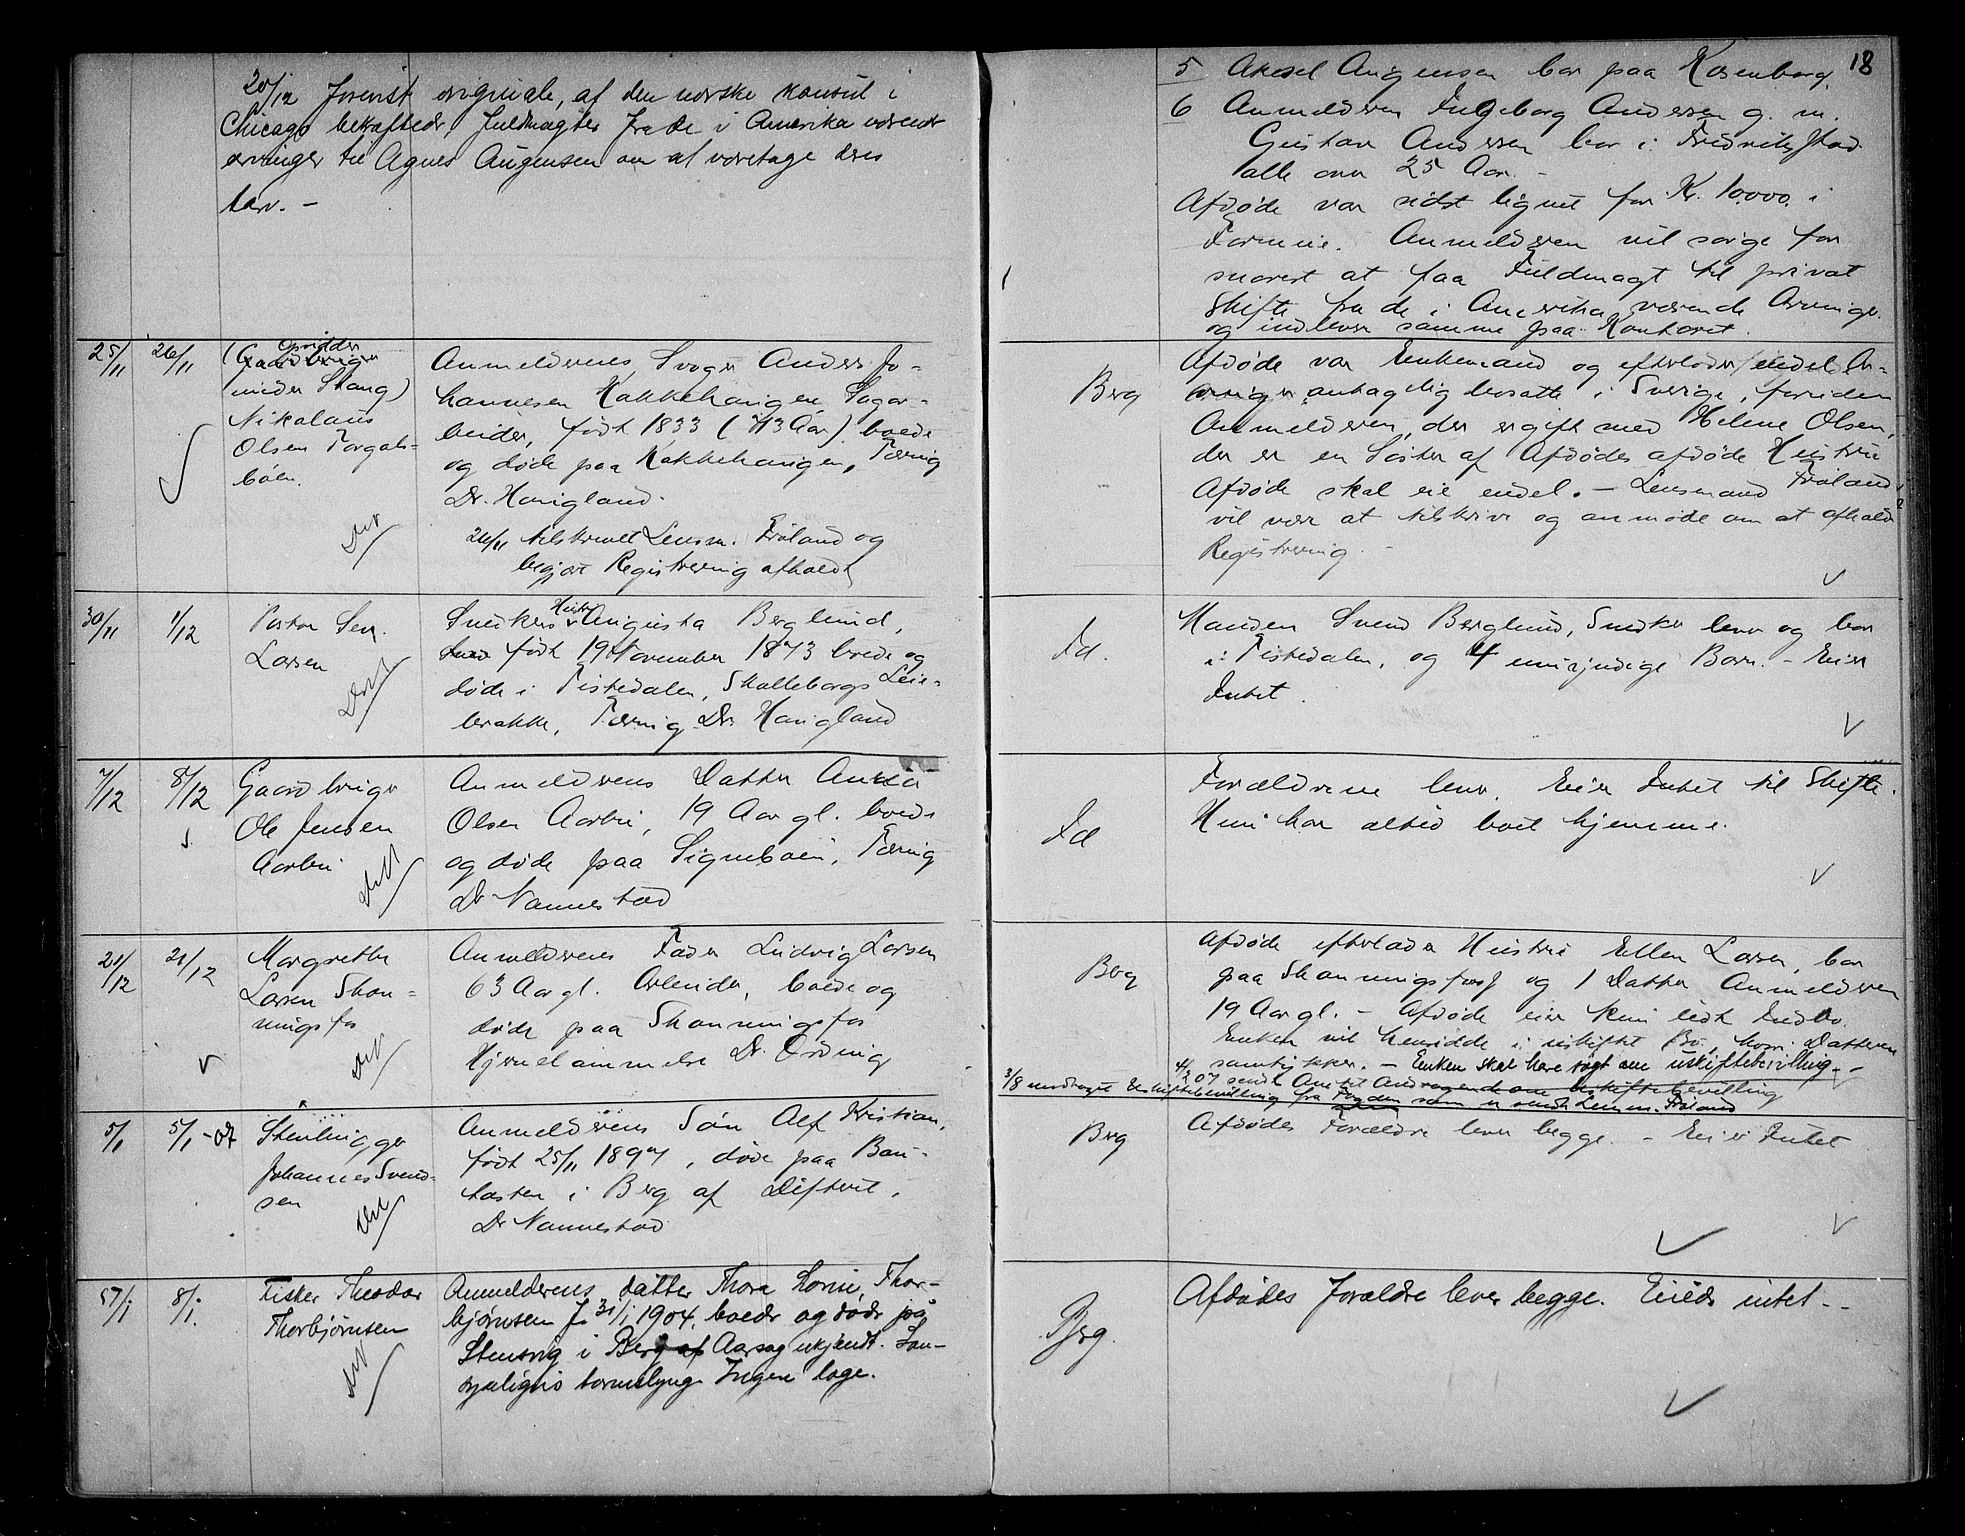 20/12 forevist originale, af den norske konsul i
Chicago bekræftede, fuldmagter fra de i Amerika værende
arvinger til Agnes Augensen om at varetage deres
tarv. -
25/11
26/11
Opsidder
(Gaardbruger
under Stang)
Nikolaus
Olsen Torgals-
bøen.
Anmelderens Svoger Anders Jo-
hannesen Hakkehaugen, Sagar-
beider, født 1833 (73 Aar) boede
og døde paa Hakkehaugen, Tæring
Dr. Haugland.
26/11 tilskrevet Lensm. Frøland og
begjært Registrering afholdt
30/11
1/12
Pastor Sev.
Larsen
Snekker Hustru Augusta Berglund,
født 19 November 1873 boede og
døde i Tistedalen, Skalleborgs Leie-
brakke, Tæring Dr. Haugland
7/12
8/12
Gaardbruger
Ole Jensen
Aarbu
Anmelderens Datter Anna
Olsen Aarbu, 19 Aar gl. boede
og døde paa Signebøen, Tæring
Dr Nannestad
21/12
21/12
Margrethe
Larsen Skon-
ningsfos
Anmelderens Fader Ludvig Larsen
63 Aar gl. Arbeider, boede og
døde paa Skonningsfos
Hjernelammelse Dr. Ording
5/1
5/1-07
Stenhugger
Johannes Svend-
sen
Anmelderens Søn Alf Kristian,
født 25/11 1897, døde paa Bau-
tasten i Berg af Difterit,
Dr Nannestad
5/1
8/1.
Fisker Theodor
Thorbjørnsen
Anmelderens datter Thora Lovise Thor-
bjørnsen f. 31/1 1904, boede og døde på
Stensvig i Berg af Aarsag ukjendt. San-
synligvis Ingen læge.
18
5 Aksel Augensen bor paa Rosenborg.
6 Anmelderen Ingeborg Andersen g. m.
Gustav Andersen bor i Fredrikstad
alle over 25 Aar. -
Afdøde var sidst lignet for Kr. 10.000. i
Formue. Anmelderen vil sørge for
snarest at faa Fuldmagt til privat
Skifte fra de i Amerika værende Arvinger
og indlever samme paa Kontoret.
Berg
Afdøde var Enkemand og efterlader endel Ar-
vinger antagelig bosatte i Sverige, foruden
Anmelderen, der er gift med Helene Olsen,
der er en Søster af Afdødes afdøde Hustru
Afdøde skal eie endel. - Lensmand Frøland
vil være at tilskrive og anmode om at afholde
Registrering. -
Id.
Manden Svend Berglund, Snekker lever og bor
i Tistedalen, og 4 umyndige Børn. - Eier
Intet.
Id
Forældrene lever. Eier Intet til Skifte.
Hun har altid boet hjemme.
Berg
Afdøde efterlader Hustru Ellen Larsen, bor
paa Skonningsfoss og 1 Datter Anmelderen
19 Aar gl. - Afdøde eier kun lidt Indbo.
Enken vil hensidde i uskiftet Bo, hvori Datteren
samtykker. - Enken skal have søgt om uskiftebevilling. -
4/2 07 sendt Amtet Andragende om Uskiftebevilling
3/8 modtaget Uskiftebevilling fra Fogden som er sendt Lensm. Frøland
Berg
Afdødes Forældre lever begge. - Eier Intet
Berg.
Afdødes forældre lever begge. Eiede intet. -